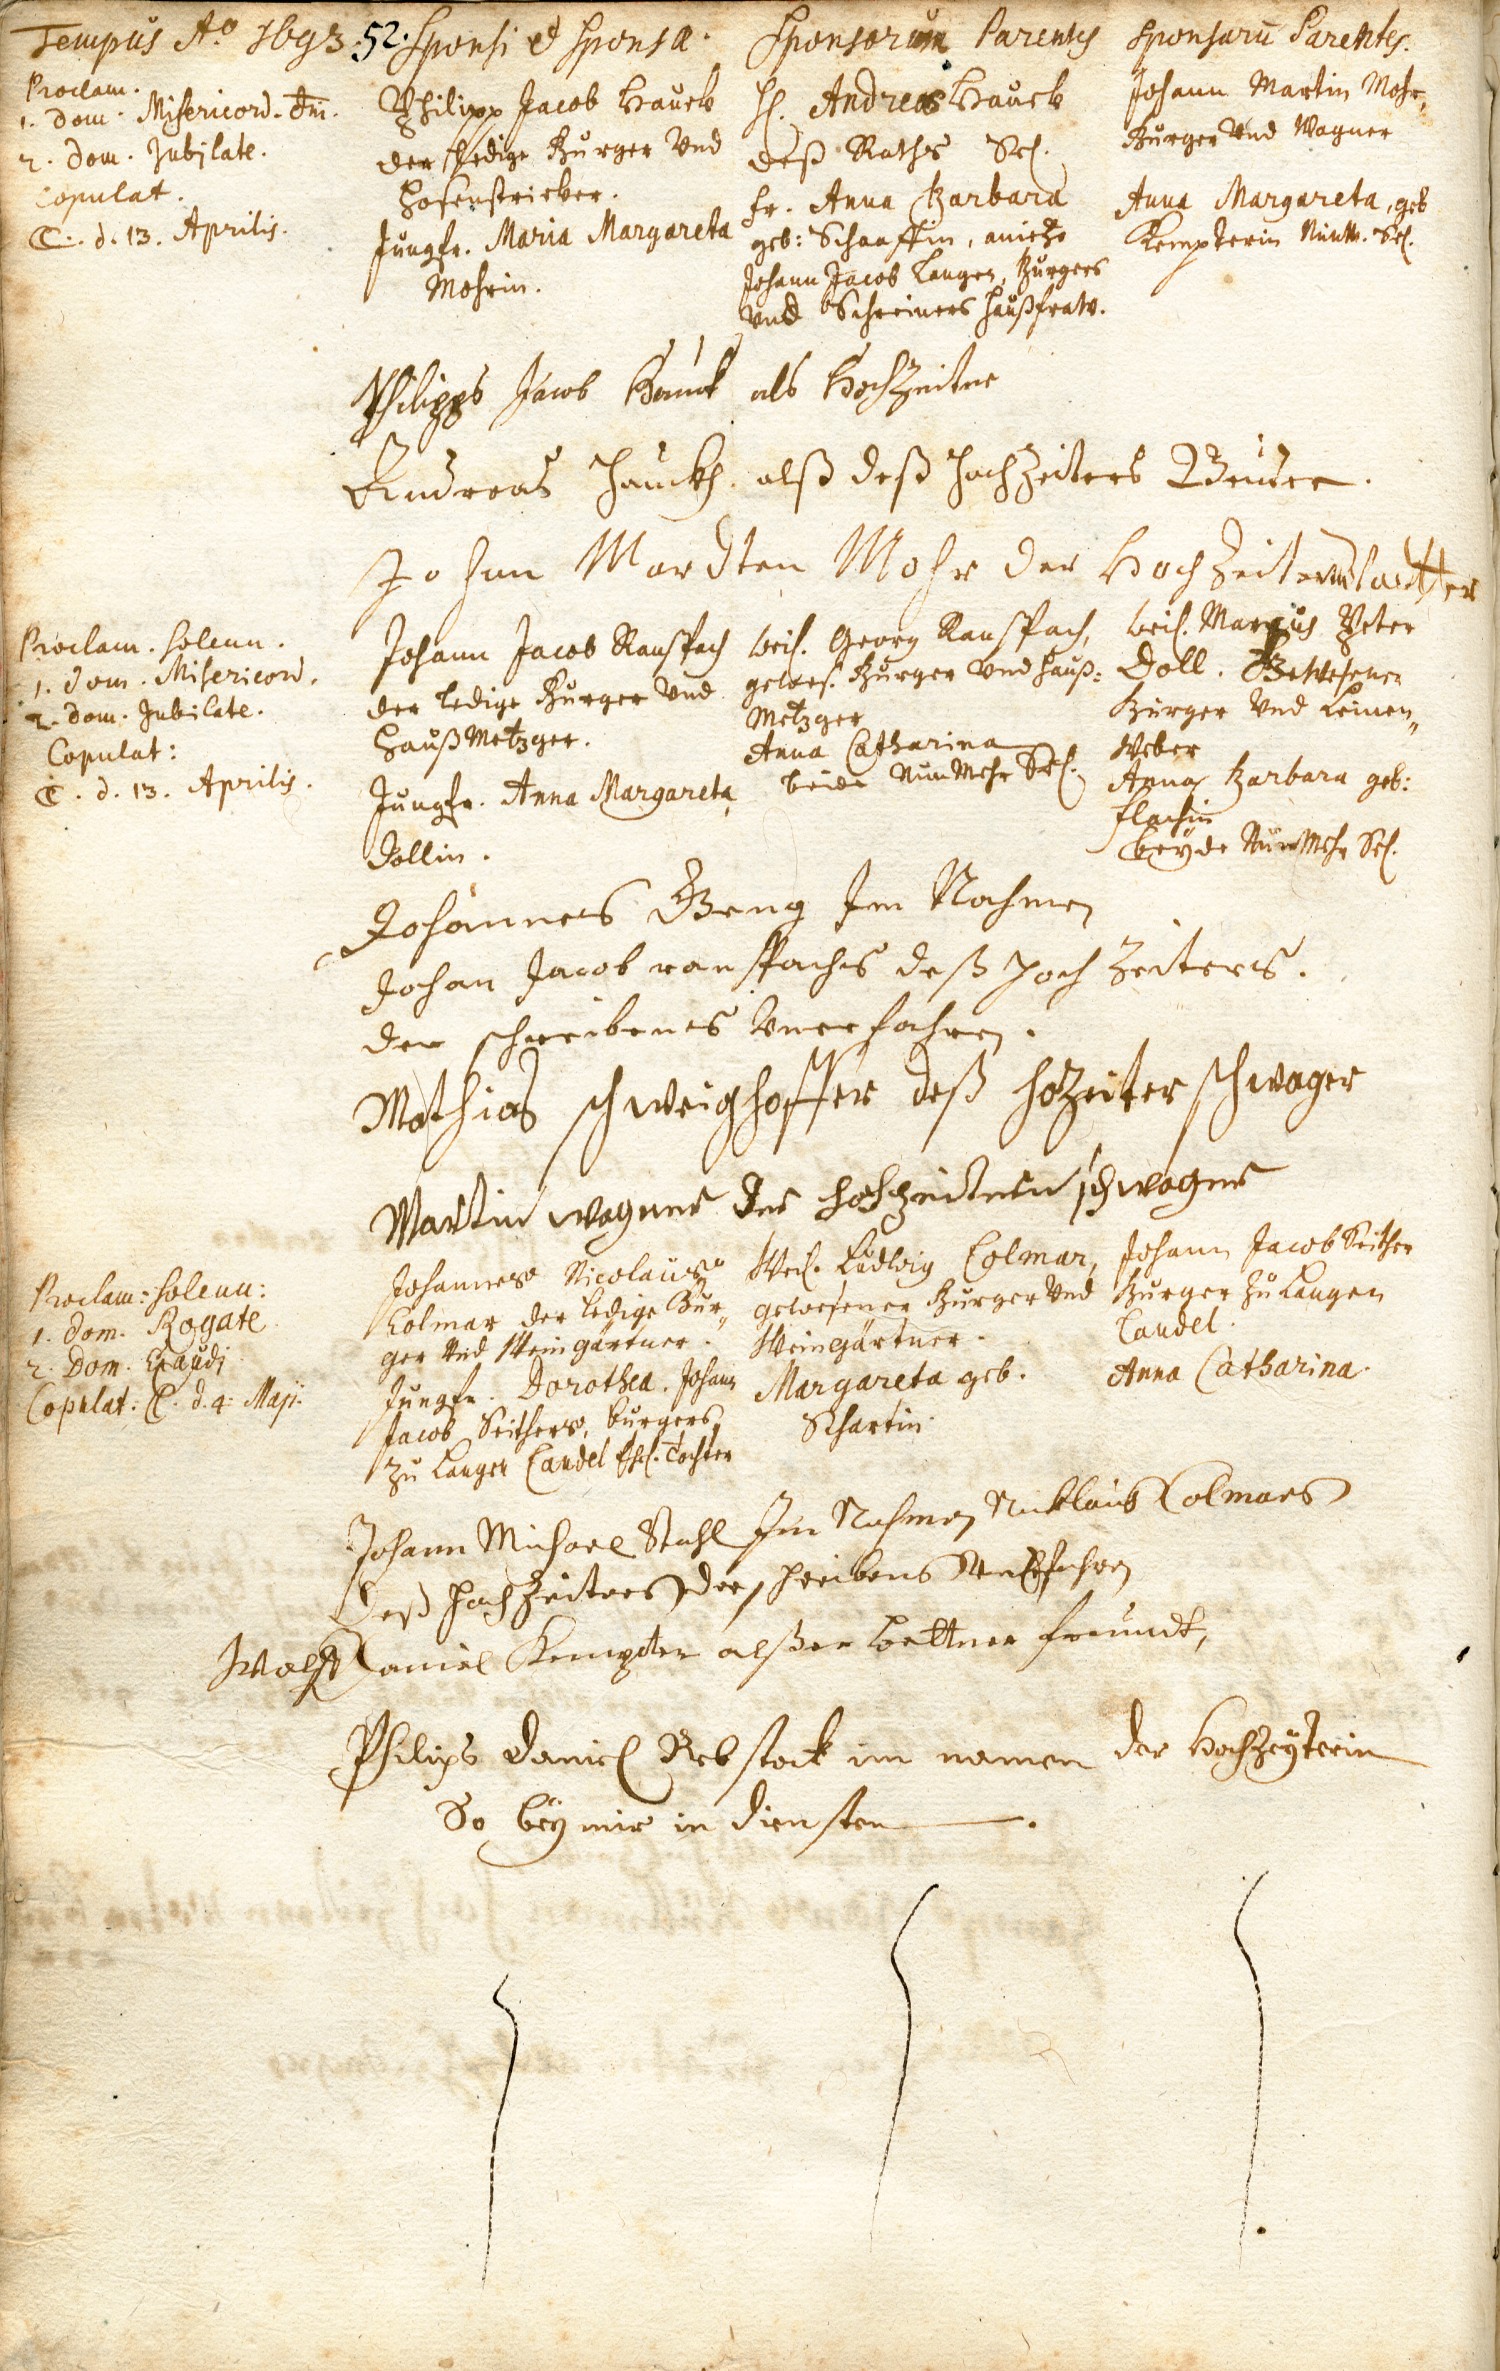 Tempus Aō 1693.
52.
Sponsi et Sponsa.
Sponsorum Parentes
Sponsarū Parentes.
Proclam.
1. Dom. Misericord. Dni.
2. Dom. Jubilate.
Copulat.
C. d. 13. Aprilis.
Philipp Jacob Hauck
der ledige Burger Vnd
Hosenstricker.
Jungfr. Maria Margareta
Mohrin.
H. Andreas Hauck
deß Raths Sel.
Fr. Anna Barbara
geb: Schaaffin, anietzo
Johann Jacob Langen, Burgers
Vnd Schreiners Haußfraw.
Johann Martin Mohr,
Burger Vnd Wagner
Anna Margareta, geb
Kempterin Nunm. Sel.
Philipps Jacob Hauck als Hochzeiter
Andreas Hauckh alß deß Hochzeiters Bruder.
Johan Mardten Mohr der Hochzeiterin Vatter
Proclam. solenn.
1. Dom. Misericord.
2. Dom. Jubilate.
Copulat:
C. d. 13. Aprilis.
Johann Jacob Ranspach
der ledige Burger Vnd
Hauß Metzger.
Jungfr. Anna Margareta
Dollin.
Weil. Georg Ranspach,
gewes. Burger Vnd Hauß-
Metzger
Anna Catharina
beide NunMehr Sel.
Weil. Marcus Peter
Doll. GeWesener
Burger Vnd Leinen„
Weber
Anna Barbara geb:
Flachin
beyde NunMehr Sel.
Johannes Geng Im Nahmen
Johan Jacob ranspachs deß Hochzeiters.
der schreibens Vnerfahren.
Mathias schweighoffer deß hozeiter schwager
Martin wagner der hochzeiteren schwager
Proclam: solenn:
1. Dom. Rogate
2. Dom. Exaudi
Copulat: C. d. 4. Maji.
Johannes Nicolaus
Colmar der ledige Bur„
ger Vnd Weingärtner.
Jungfr. Dorothea. Johann
Jacob Seithers, burgers
zu Langen Candel Ehel. Tochter
Weil. Ludwig Colmar,
gewesener Burger Vnd
Weingärtner.
Margareta geb.
Schartin.
Johann Jacob Seither
Burger zu Langen
Candel.
Anna Catharina.
Johann Michael Stahl Im Nahmen Nicklaus Colmars
deß Hochzeiters der schreibens Vnerfahren
Wolff Daniel Kempter alß erbettner freundt,
Philips Daniel Rebstock im namen der Hochzeyterin
So bey mir in diensten.